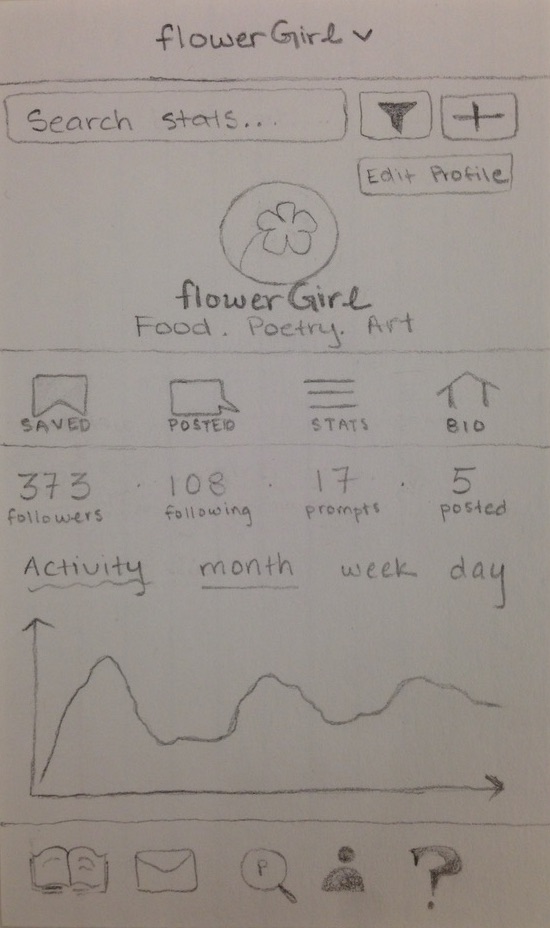 flowerGirl
Search stats...
Edit Profile
flowerGirl
Food. Poetry. Art
SAVED POSTED STATS BIO
373 · 108 · 17 · 5
followers following prompts posted
Activity month week day
P
?